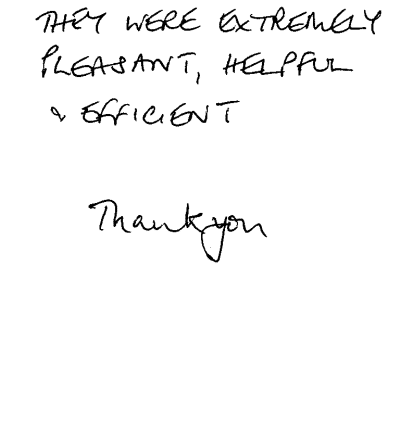 THEY WERE EXTREMELY
PLEASANT, HELPFUL
& EFFICIENT
Thankyou